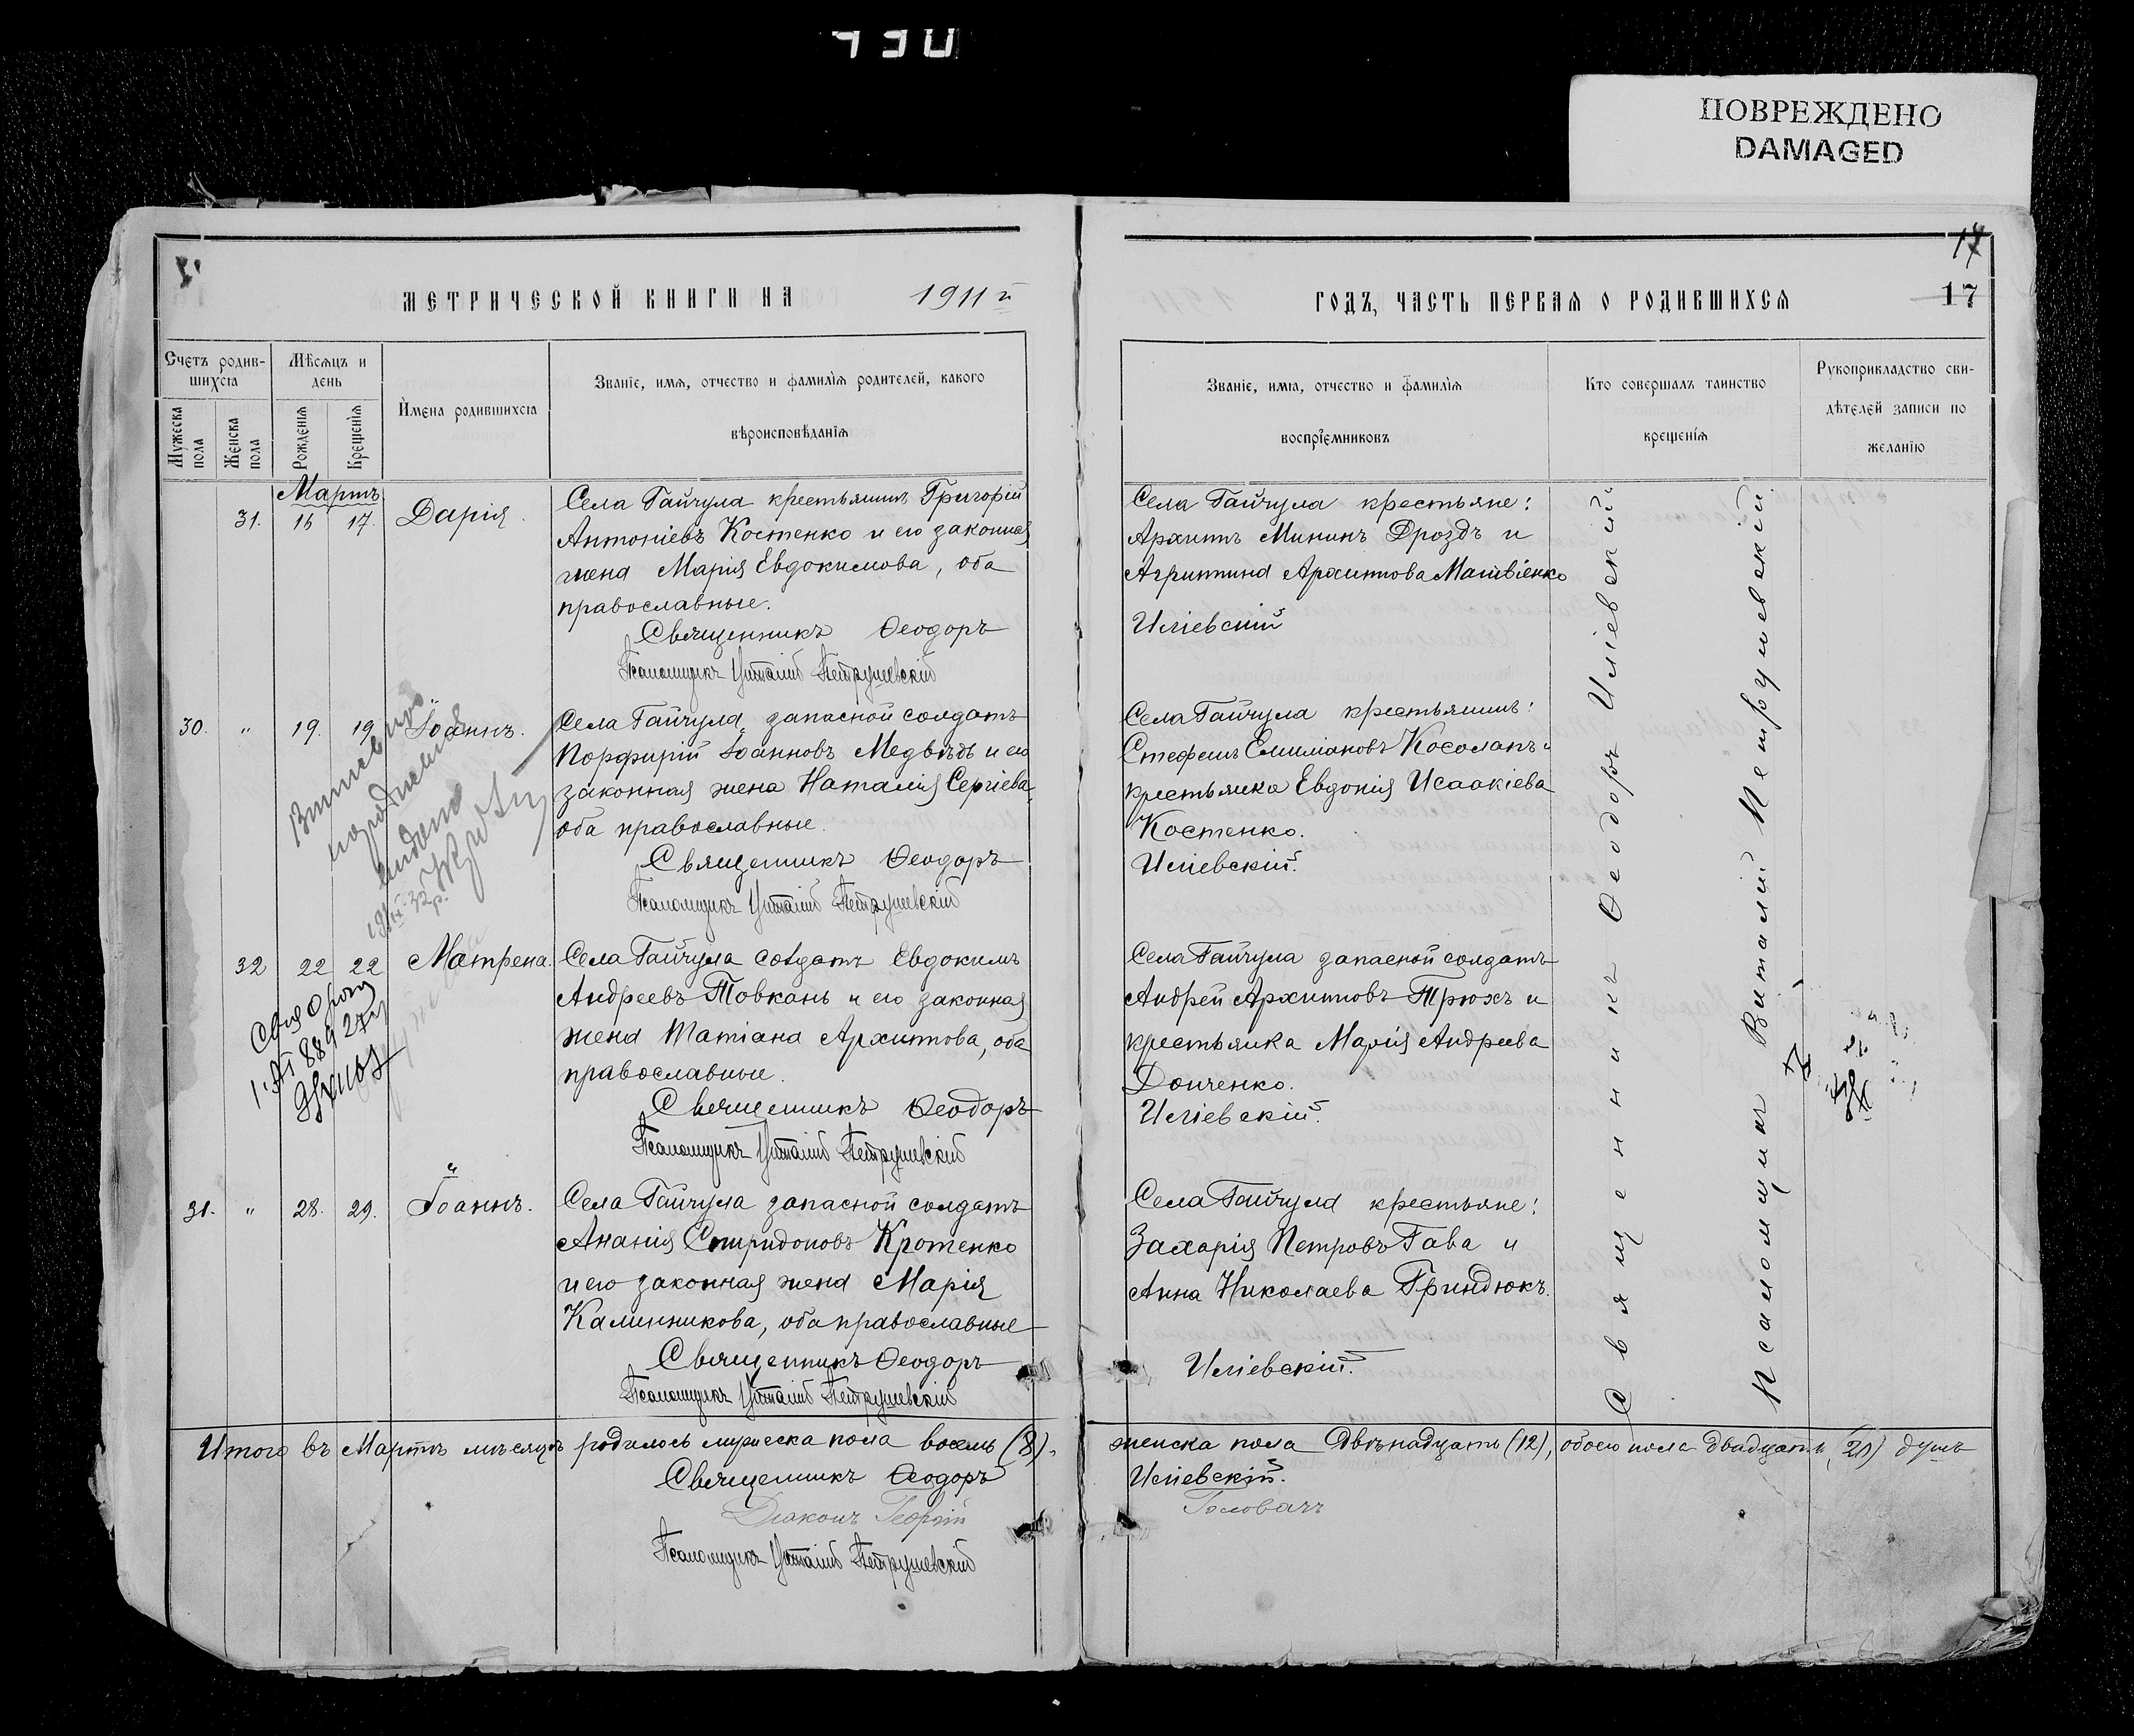 ПОВРЕЖДЕНО
DAMAGED
МЕТРИЧЕСКОЙ КНИГИ НА 1911й
Счетъ родившихсѧ
Мѣсѧцъ и день
Имена родившихсѧ
Званіе, имѧ, отчество и фамиліѧ родителей, какого вѣроисповѣданіѧ
Мужеска пола
Женска пола
Рожденіѧ
Крещеніѧ
Мартъ
31. 16 17. Дарія.
Села Гайчула крестьянинъ Григорій
Антоніевъ Костенко и его законная
жена Марія Евдокимова, оба
православные.
Священникъ Ѳеодоръ
Псаломщикъ Виталій Петрушевскій
30. " 19. 19. Іоаннъ.
Села Гайчула запасной солдатъ
Порфирій Іоанновъ Медвѣдь и его
законная жена Наталія Сергіева,
оба православные.
Священникъ Ѳеодоръ
Псаломщикъ Виталій Петрушевскій
32 22 22 Матрена.
Села Гайчула солдатъ Евдокимъ
Андреевъ Товкань и его законная
жена Татіана Архипова, оба
православные.
Священникъ Ѳеодоръ
Псаломщикъ Виталій Петрушевскій
31. " 28. 29. Іоаннъ.
Села Гайчула запасной солдатъ
Ананія Спиридоновъ Кротенко
и его законная жена Марія
Калинникова, оба православные
Священникъ Ѳеодоръ
Псаломщикъ Виталій Петрушевскій
Итого въ Мартѣ мѣсяцѣ родилось мужеска пола восемь (8),
Священникъ Ѳеодоръ
Діаконъ Георгій
Псаломщикъ Виталій Петрушевскій
17
ГОДЪ, ЧАСТЬ ПЕРВАѦ О РОДИВШИХСѦ
17
Званіе, имѧ, отчество и фамиліѧ воспріемниковъ
Кто совершалъ таинство крещеніѧ
Рукоприкладство свидѣтелей записи по желанію
Села Гайчула крестьяне:
Архипъ Мининъ Дроздъ и
Агриппина Архипова Матвіенко
Иліевскій
Села Гайчула крестьянинъ:
Стефанъ Емиліановъ Косолапъ и
крестьянка Евдокія Исаакіева
Костенко.
Иліевскій.
Села Гайчула запасной солдатъ
Андрей Архиповъ Трюхъ и
крестьянка Марія Андреева
Донченко.
Иліевскій.
Села Гайчула крестьяне:
Захарія Петровъ Гава и
Анна Николаева Гриндюкъ.
Иліевскій.
Священникъ Ѳеодоръ Иліевскій
Псаломщикъ Виталій Петрушевскій
женска пола двѣнадцать (12), обоего пола двадцать (20) душъ
Иліевскій.
Головачъ